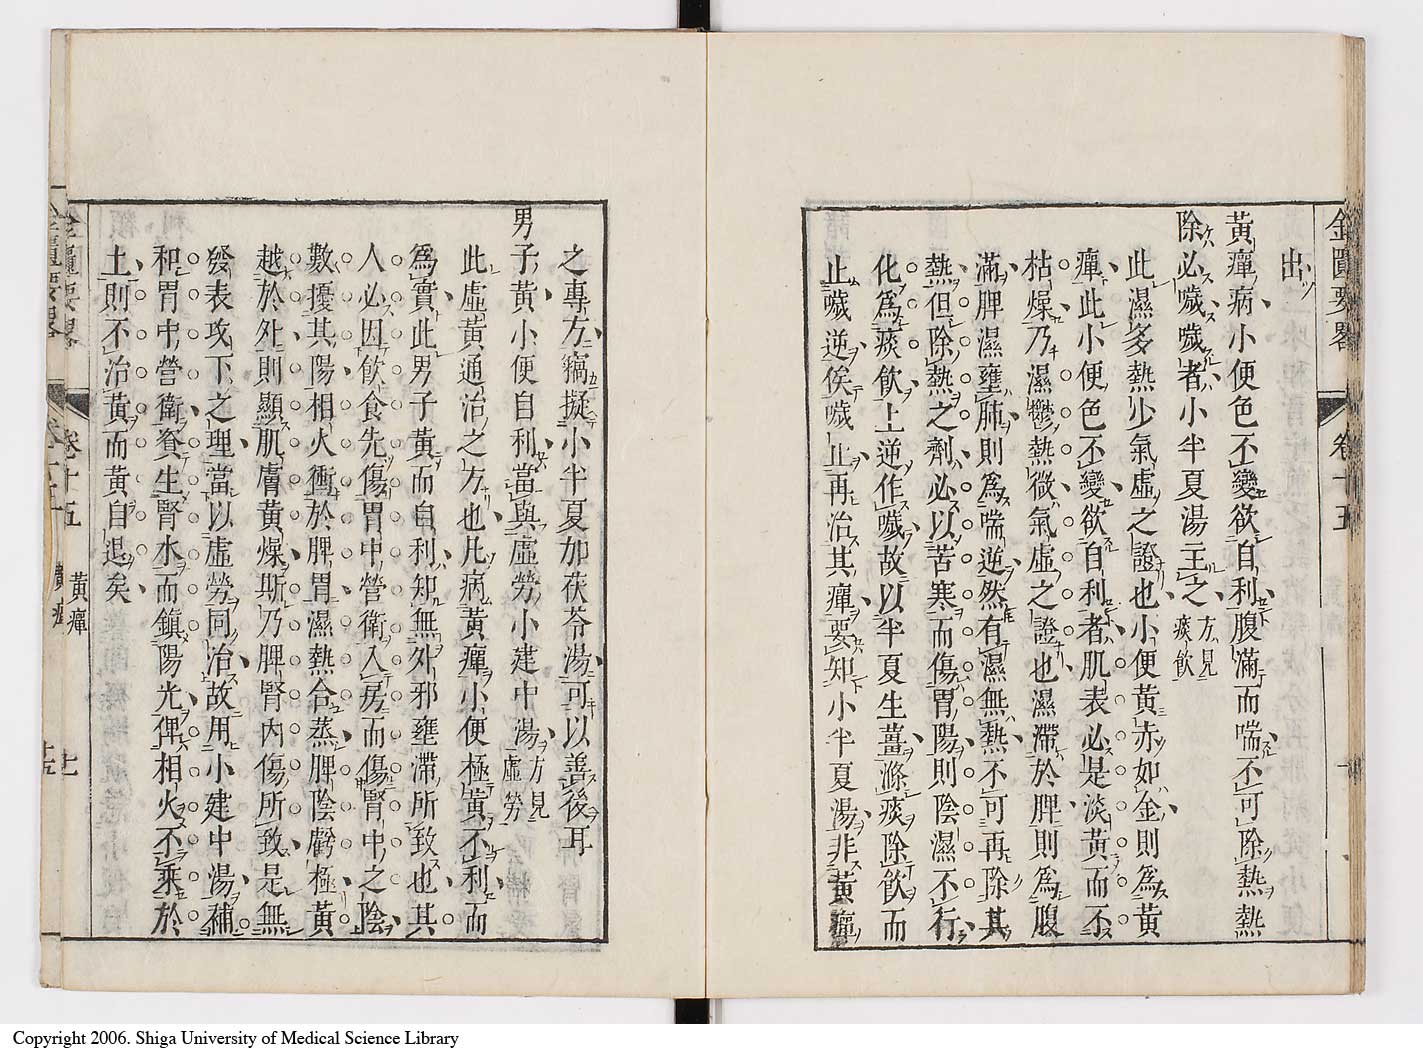 金匱要畧 卷十五
出
黃癉病小便色不變欲自利腹滿而喘不可除熱熱
除必噦噦者小半夏湯主之方見痰飲
此濕多熱少氣虛之證也小便黃赤如金則爲黃
癉此小便色不變欲自利者肌表必是淡黃而不
枯燥乃濕鬱熱微氣虛之證也濕滯於脾則爲腹
滿脾濕壅肺則爲喘逆然有濕無熱不可再除其
熱但除熱之劑必以苦寒而傷胃陽則陰濕不行
化爲痰飲上逆作噦故以半夏生薑滌痰除飲而
止噦逆俟噦止再治其癉要知小半夏湯非黃癉
之專方竊擬小半夏加茯苓湯可以善後耳
男子黃小便自利當與虛勞小建中湯方見虛勞
此虛黃通治之方也凡病黃癉小便極黃不利而
爲實此男子黃而自利知無外邪壅滯所致也其
人必因飲食先傷胃中營衛入房而傷腎中之陰
數擾其陽相火衝於脾胃濕熱合蒸脾陰虧極黃
越於外則顯肌膚黃燥斯乃脾腎內傷所致是無
發表攻下之理當以虛勞同治故用小建中湯補
和胃中營衛資生腎水而鎮陽光俾相火不乘於
土則不治黃而黃自退矣
金匱要畧 卷十五 黃癉
Copyright 2006. Shiga University of Medical Science Library